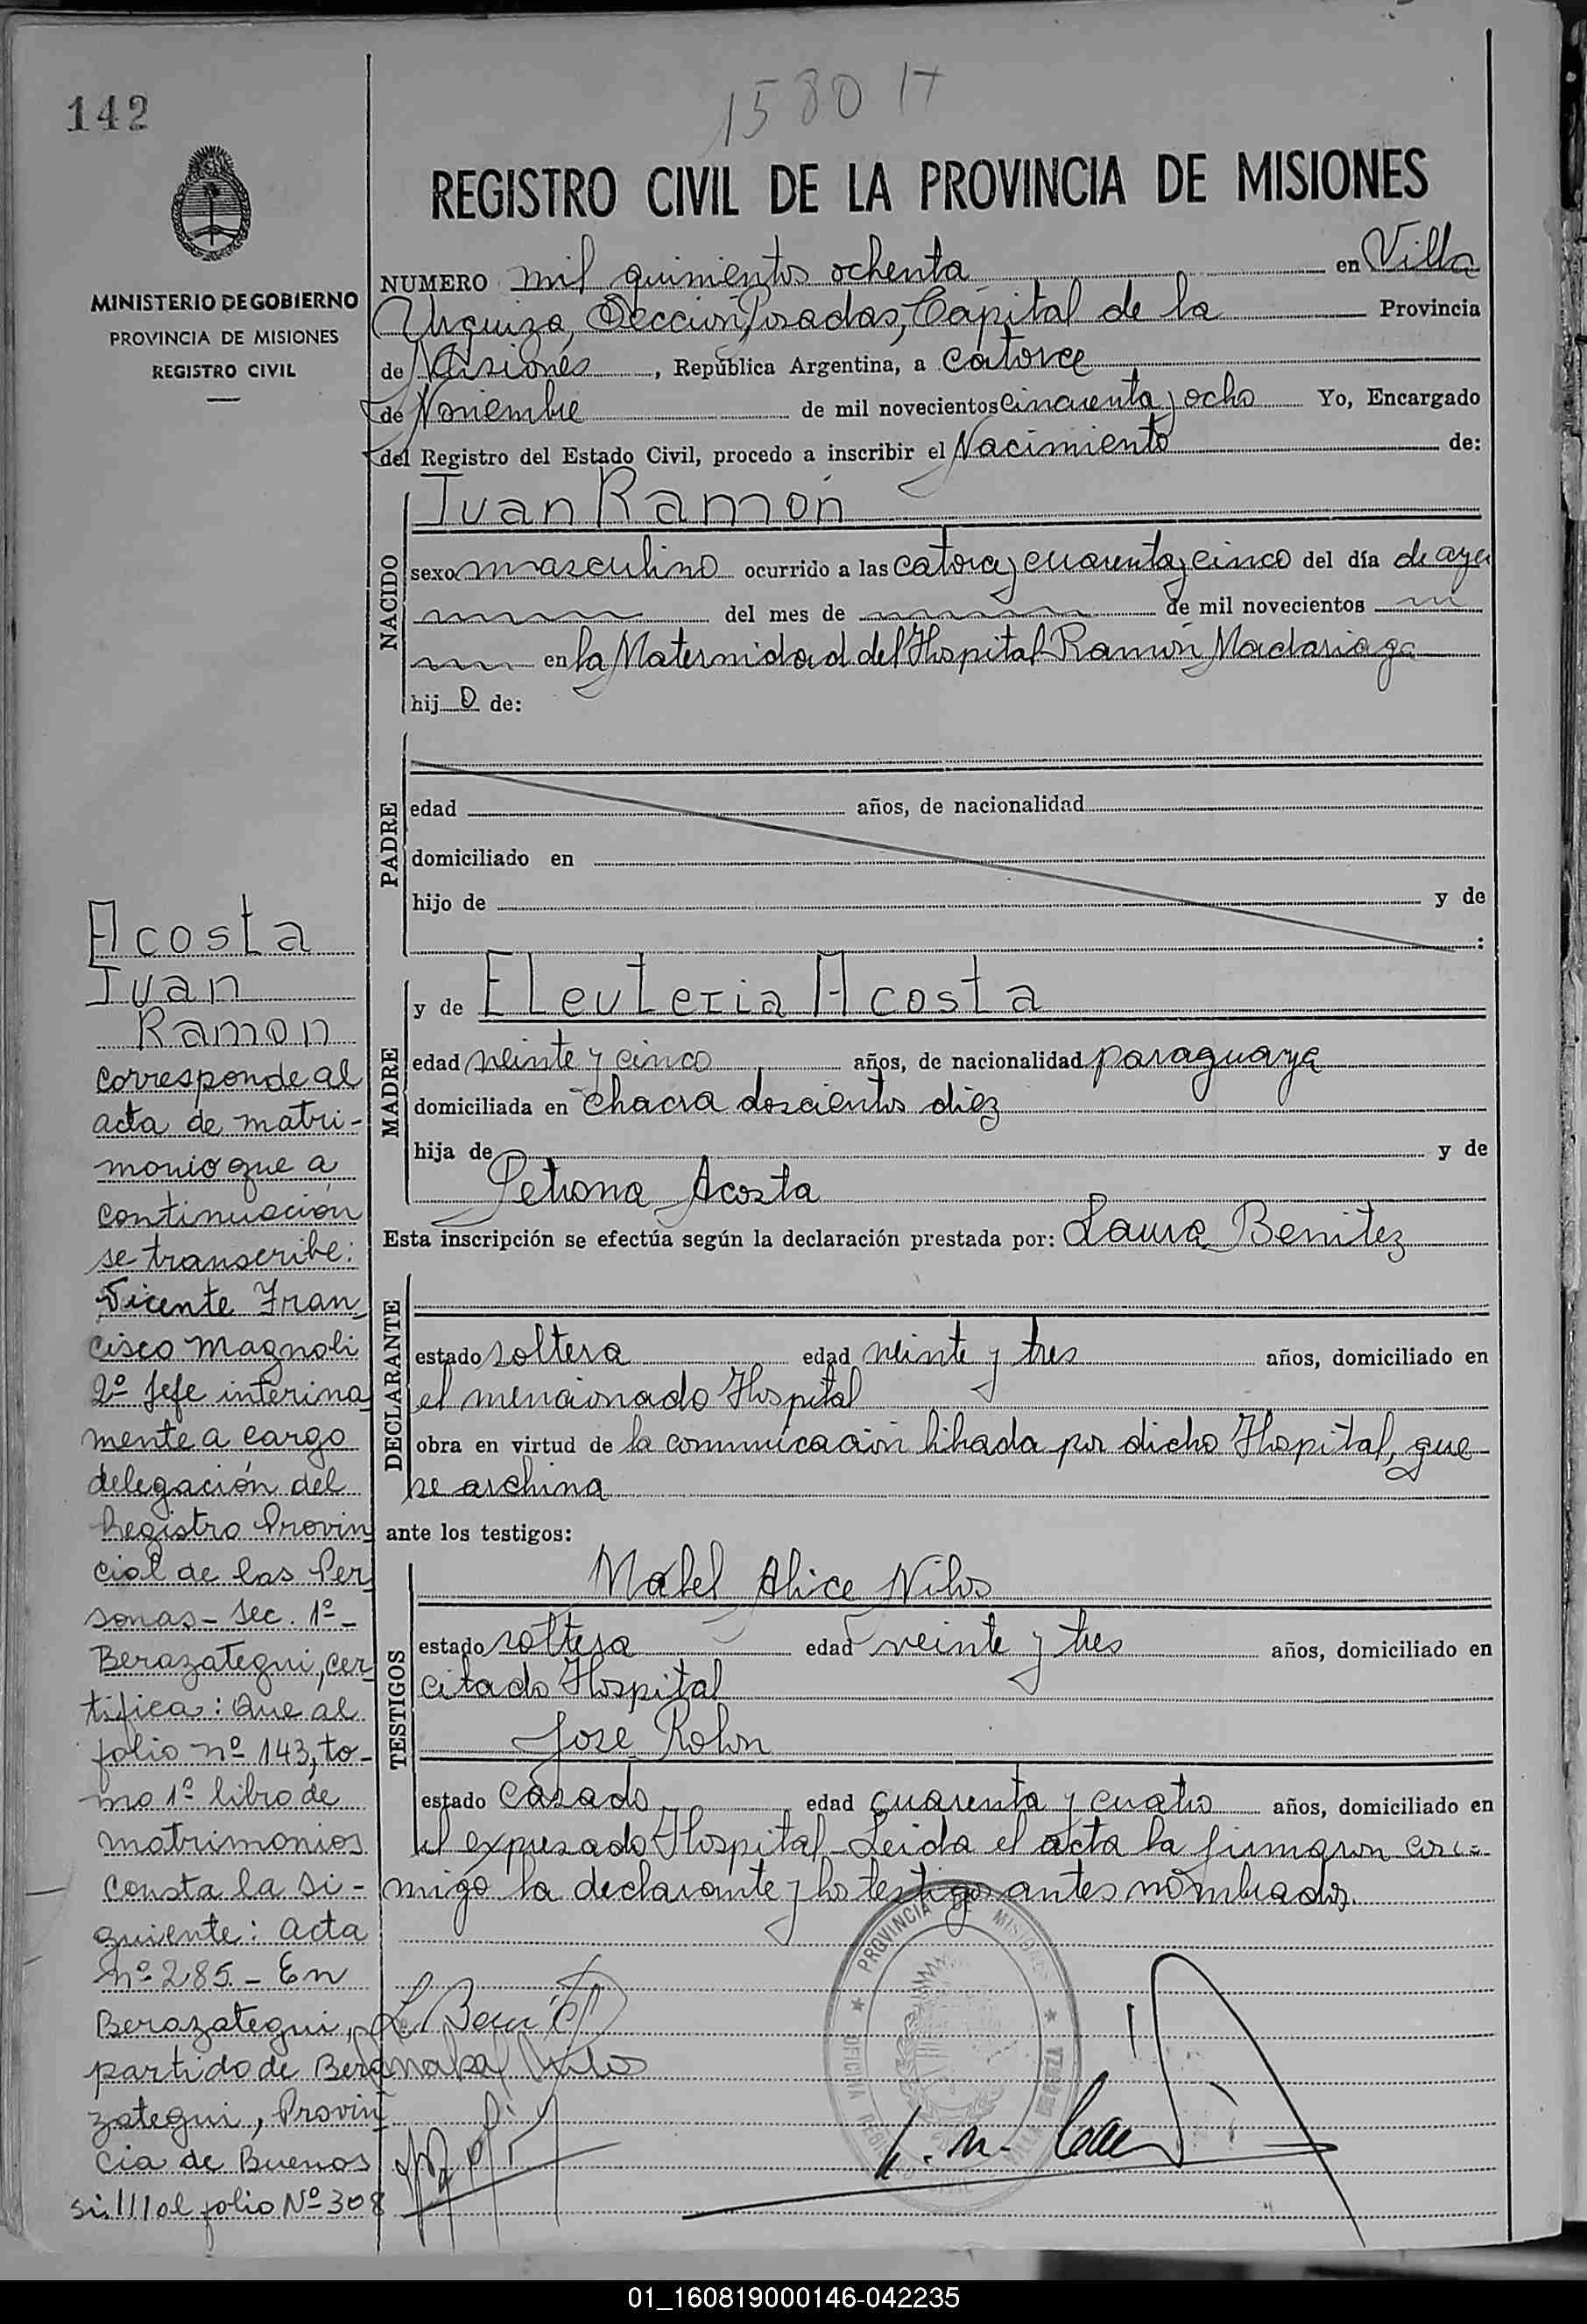 142
1580 17
REGISTRO CIVIL DE LA PROVINCIA DE MISIONES
MINISTERIO DE GOBIERNO
PROVINCIA DE MISIONES
REGISTRO CIVIL
NUMERO mil quinientos ochenta en Villa
Urquiza, Sección Posadas, Capital de la Provincia
de Misiones, República Argentina, a catorce
de Noviembre de mil novecientos cincuenta y ocho Yo, Encargado
del Registro del Estado Civil, procedo a inscribir el Nacimiento de:
NACIDO
Juan Ramón
sexo masculino ocurrido a las catorce y cuarenta y cinco del día de ayer
del mes de de mil novecientos
en la Maternidad del Hospital Ramón Madariaga
hij o de:
PADRE
edad años, de nacionalidad
domiciliado en
hijo de y de
:
MADRE
y de Eleuteria Acosta
edad veinte y cinco años, de nacionalidad paraguaya
domiciliada en chacra doscientos diez
hija de y de
Petrona Acosta
Esta inscripción se efectúa según la declaración prestada por: Laura Benitez
DECLARANTE
estado soltera edad veinte y tres años, domiciliado en
el mencionado Hospital
obra en virtud de la comunicación librada por dicho Hospital, que
se archiva
ante los testigos:
TESTIGOS
Mabel Alice
estado soltera edad veinte y tres años, domiciliado en
citado Hospital
Jose Rolon
estado casado edad cuarenta y cuatro años, domiciliado en
el expresado Hospital Leida el acta la firmaron con=
migo la declarante y los testigos antes nombrados.
PROVINCIA DE MISIONES
OFICINA REGISTRO CIVIL VILLA URQUIZA
L. Benitez
Acosta
Juan
Ramon
corresponde al
acta de matri-
monio que a
continuación
se transcribe:
Vicente Fran
cisco Magnoli
2º Jefe interina
mente a cargo
delegación del
Registro Provin
cial de las Per
sonas - Sec. 1º -
Berazategui, cer
tifica: Que al
folio nº 143, to-
mo 1º libro de
matrimonios
consta la si-
guiente: acta
nº 285. - En
Berazategui,
partido de Bera
zategui, Provin
cia de Buenos
si. /// al folio Nº 308
01_160819000146-042235